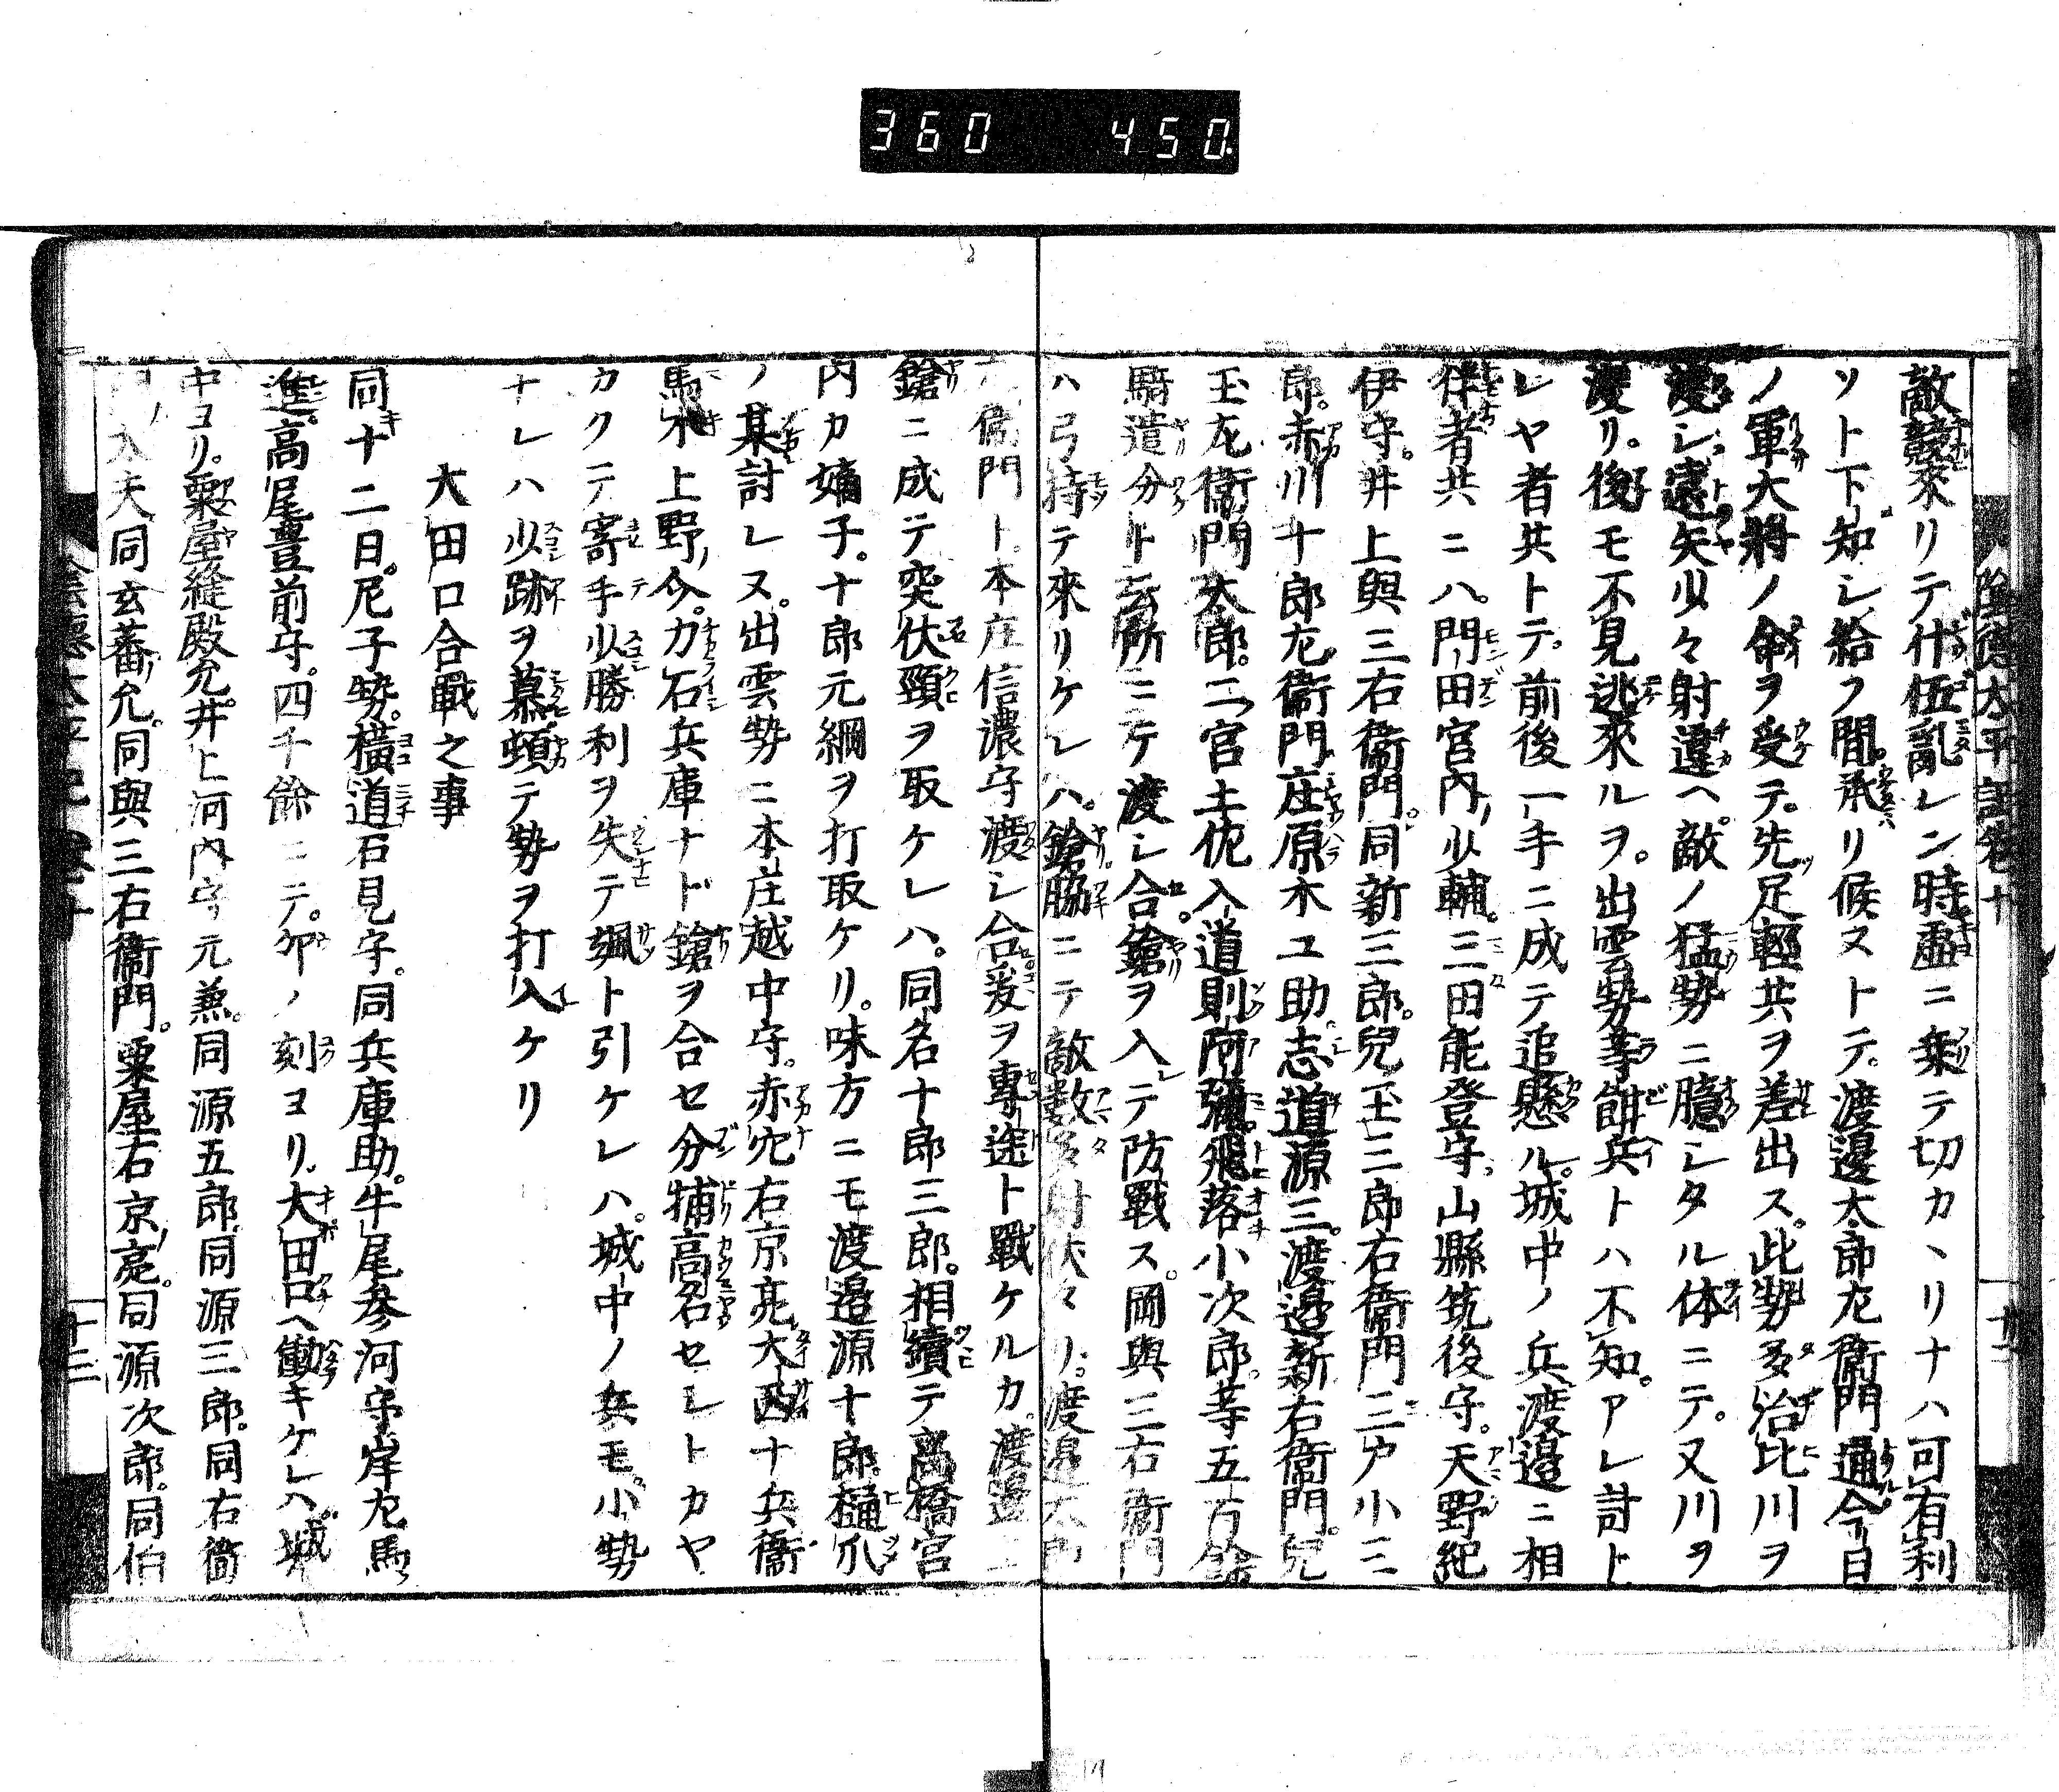 360 450
陰徳太平記巻十
十二
敵競來リテ什伍亂レン時虚ニ乗テ切カヽリナハ可有利
ソト下知シ給フ間。承リ候ヌトテ。渡邊太郎左衛門通今日
ノ軍大將ノ命ヲ受テ。先足輕共ヲ差出ス。此勢多治比川ヲ
渡シ。遠矢少々射違ヘ。敵ノ猛勢ニ臆シタル体ニテ。又川ヲ
渡リ。後モ不見逃來ルヲ。出雲勢等餌兵トハ不知。アレ討ト
レヤ者共トテ。前後一手ニ成テ追懸ル。城中ノ兵渡邉ニ相
伴者共ニハ。門田宮内少輔。三田能登守。山縣筑後守。天野紀
伊守。井上與三右衛門。同新三郎。兒玉三郎右衛門三戸小三
郎。赤川十郎左衛門。庄原木工助。志道源三。渡邉新右衛門。兒
玉左衛門太郎。二宮土佐入道則阿彌。飛落小次郎。等五百餘
騎遣分ト云所ニテ渡シ合。鎗ヲ入テ防戰ス。岡與三右衛門
ハ弓持テ來リケレハ。鎗脇ニテ敵数多射伏タリ。渡邉太郎
左衛門ト。本庄信濃守渡シ合爰ヲ專途ト戰ケルカ。渡邉
鎗ニ成テ突伏頸ヲ取ケレハ。同名十郎三郎。相續テ高橋宮
内カ嫡子。十郎元綱ヲ打取ケリ。味方ニモ渡邉源十郎。樋爪
ノ某討レヌ。出雲勢ニ本庄越中守。赤穴右京亮。大西十兵衛
馬木上野介。力石兵庫ナド鎗ヲ合セ分捕高名セレトカヤ
カクテ寄手少勝利ヲ失テ颯ト引ケレハ。城中ノ兵モ。小勢
ナレハ少跡ヲ慕頓テ勢ヲ打入ケリ
大田口合戰之事
同十二日。尼子勢。横道石見守。同兵庫助。牛尾參河守。岸左馬
進。高尾豊前守。四千餘ニテ。卯ノ刻ヨリ。大田口ヘ働キケレハ。城
中ヨリ。粟屋縫殿允。井上河内守元兼。同源五郎。同源三郎。同右衛
門ノ大夫同玄蕃允。同與三右衛門。粟屋右京亮。同源次郎。同伯
十三